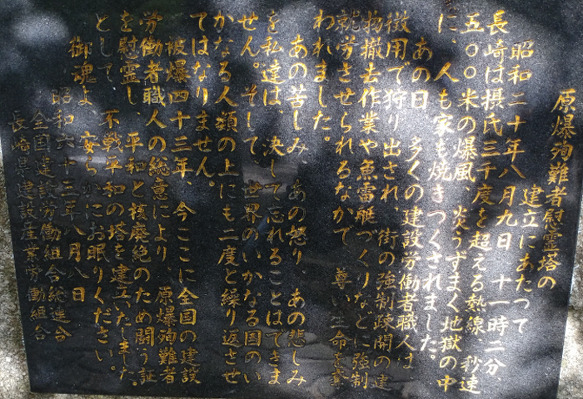 原爆殉難者慰霊塔の
建立にあたって
昭和二十年八月九日 十一時二分、
長崎は摂氏三千度を超える熱線、秒速
五〇〇米の爆風、炎うずまく地獄の中
に、人も家も焼きつくされました。
あの日 多くの建設労働者職人は
徴用で狩り出され 街の強制疎開の建
物撤去作業や魚雷艇づくりなどに強制
就労させられるなかで 尊い生命を奪
われました。
あの苦しみ、あの怒り、あの悲しみ
を私達は 決して忘れることはできま
せん。そして、世界のいかなる国のい
かなる人類の上にも二度と繰り返させ
てはなりません。
被爆四十三年、今ここに全国の建設
労働者職人の総意により、原爆殉難者
を慰霊し 平和と核廃絶のため闘う証
として 不戦平和の塔を建立いたしました。
御魂よ、安らかにお眠りください。
昭和六十三年八月八日
全国建設労働組合総連合
長崎県建設産業労働組合